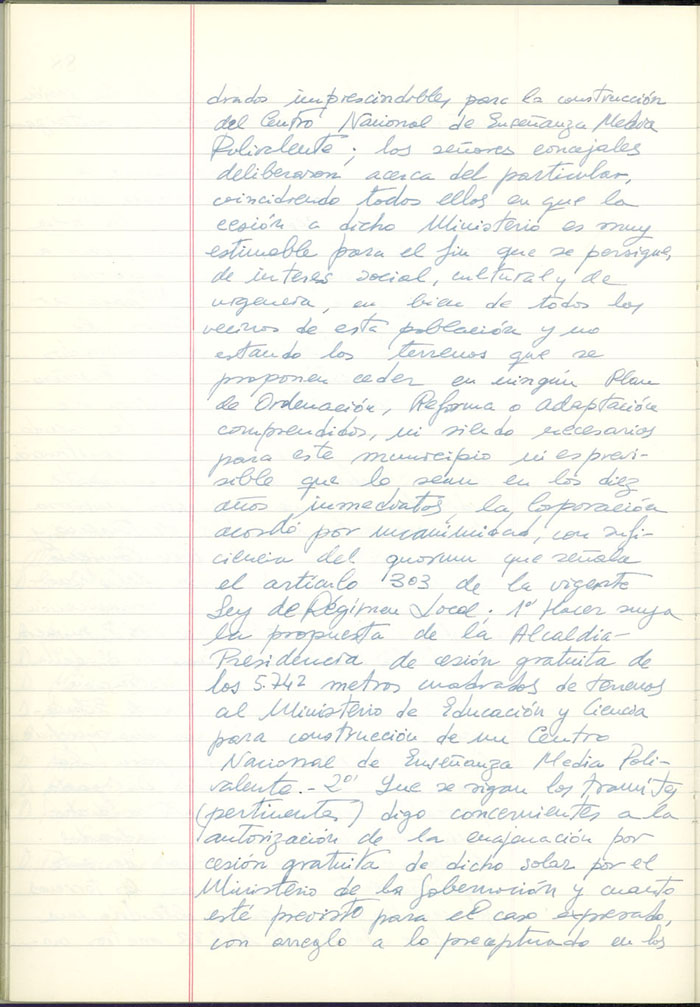 drados imprescindibles para la construcción
del Centro Nacional de Enseñanza Media
Polivalente; los señores concejales
deliberaron acerca del particular,
coincidiendo todos ellos en que la
cesión a dicho Ministerio es muy
estimable para el fin que se persigue,
de interés social, cultural y de
urgencia, en bien de todos los
vecinos de esta población y no
estando los terrenos que se
proponen ceder en ningún Plan
de Ordenación, Reforma o adaptación
comprendidos, ni siendo necesarios
para este municipio ni es previ-
sible que lo sean en los diez
años inmediatos, la Corporación
acordó por unanimidad, con sufi-
ciencia del quorum que señala
el artículo 303 de la vigente
Ley de Régimen Local: 1º Hacer suya
la propuesta de la Alcaldía-
Presidencia de cesión gratuita de
los 5.742 metros cuadrados de terrenos
al Ministerio de Educación y Ciencia
para construcción de un Centro
Nacional de Enseñanza Media Poli-
valente.- 2º Que se sigan los tramites
(pertinentes) digo concernientes a la
autorización de la enajenación por
cesión gratuita de dicho solar por el
Ministerio de la Gobernación y cuanto
esté previsto para el caso expresado,
con arreglo a lo preceptuado en los